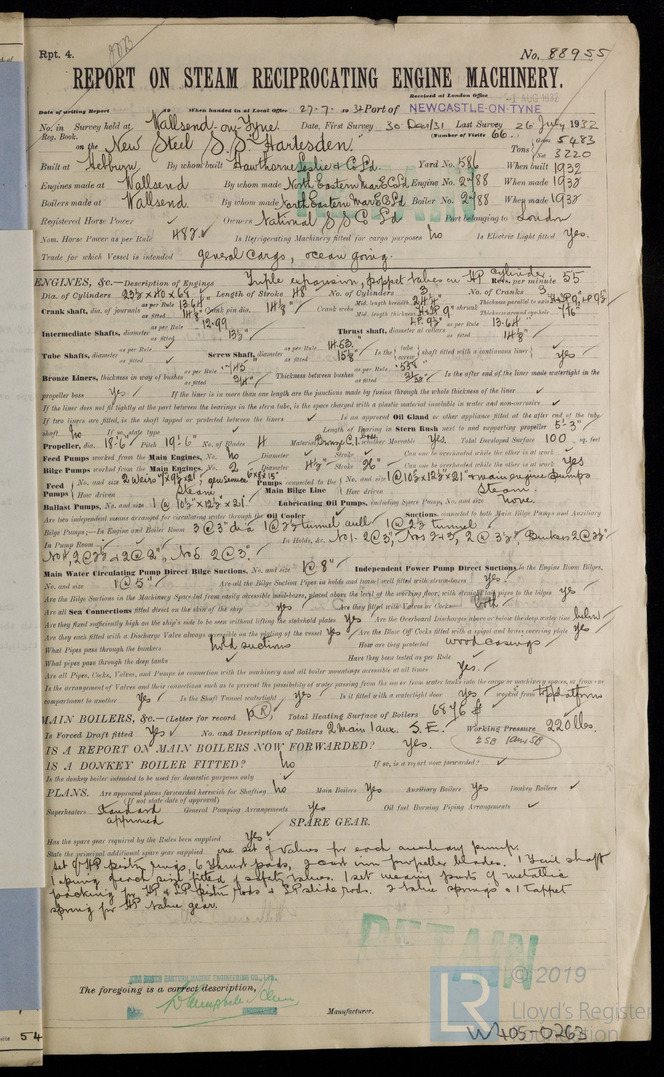 Rpt. 4.
No. 88955
REPORT ON STEAM RECIPROCATING ENGINE MACHINERY.
Received at London Office
Date of writing Report 19 When handed in at Local Office 27·7· 19 32 Port of NEWCASTLE-ON-TYNE
No. in Survey held at Wallsend-on-Tyne. Date, First Survey 30 Dec/31 Last Survey 26 July 1932
Reg. Book. (Number of Visits 66
on the New Steel S.S. Harlesden. Tons Gross 5483
Net 3220
Built at Hebburn By whom built Hawthorne Leslie & Co Ld. Yard No. 586 When built 1932
Engines made at Wallsend By whom made North Eastern Mar. E Co Ld Engine No. 2788 When made 1932
Boilers made at Wallsend. By whom made North Eastern Mar E Co Ld Boiler No. 2788 When made 1932
Registered Horse Power Owners National S S C Ld Port belonging to London
Nom. Horse Power as per Rule 482 Is Refrigerating Machinery fitted for cargo purposes no Is Electric Light fitted Yes.
Trade for which Vessel is intended general cargo, ocean going.
ENGINES, &c.—Description of Engines Triple expansion, poppet valves on HP cylinder. Revs. per minute 55
Dia. of Cylinders Length of Stroke 48" No. of Cylinders 3 No. of Cranks 3
Crank shaft, dia. of journals as per Rule 13·64" Crank pin dia. 14 1/8" Crank webs
Intermediate Shafts, diameter as per Rule 12·99 as fitted 13 1/2" Thrust shaft, diameter at collars as per Rule 13·64" as fitted 14 1/8"
Tube Shafts, diameter as per Rule as fitted Screw Shaft, diameter as per Rule 14·53 as fitted 15 1/8" Is the tube screw shaft fitted with a continuous liner yes
Bronze Liners, thickness in way of bushes as per Rule as fitted 3/4" Thickness between bushes as per Rule as fitted Is the after end of the liner made watertight in the
propeller boss Yes If the liner is in more than one length are the junctions made by fusion through the whole thickness of the liner
If the liner does not fit tightly at the part between the bearings in the stern tube, is the space charged with a plastic material insoluble in water and non-corrosive
If two liners are fitted, is the shaft lapped or protected between the liners Is an approved Oil Gland or other appliance fitted at the after end of the tube
shaft no If so, state type Length of Bearing in Stern Bush next to and supporting propeller 5'·3"
Propeller, dia. 18'·6" Pitch 19'·6" No. of Blades 4 Material whether Moveable Yes. Total Developed Surface 100 sq. feet
Feed Pumps worked from the Main Engines, No. no Diameter Stroke Can one be overhauled while the other is at work
Bilge Pumps worked from the Main Engines, No. 2 Diameter 4 1/2" Stroke 26" Can one be overhauled while the other is at work yes
Feed Pumps No. and size Pumps connected to the Main Bilge Line No. and size 1 @ 10 1/2" x 12 1/2" x 21" & main engine pumps
How driven Steam How driven Steam.
Ballast Pumps, No. and size 1 @ 10 1/2" x 12 1/2" x 21" Lubricating Oil Pumps, including Spare Pump, No. and size none.
Are two independent means arranged for circulating water through the Oil Cooler Suctions, connected to both Main Bilge Pumps and Auxiliary
Bilge Pumps;—In Engine and Boiler Room 3 @ 3" dia 1 @ 2 1/2 tunnel well 1 @ 2 1/2 tunnel
In Pump Room In Holds, &c.
Main Water Circulating Pump Direct Bilge Suctions, No. and size 1 @ 8" Independent Power Pump Direct Suctions to the Engine Room Bilges,
No. and size 1 @ 5" Are all the Bilge Suction Pipes in holds and tunnel well fitted with strum-boxes yes
Are the Bilge Suctions in the Machinery Space led from easily accessible mud-boxes, placed above the level of the working floor, with straight tail pipes to the bilges yes
Are all Sea Connections fitted direct on the skin of the ship yes Are they fitted with Valves or Cocks both
Are they fixed sufficiently high on the ship's side to be seen without lifting the stokehold plates Yes Are the Overboard Discharges above or below the deep water line below
Are they each fitted with a Discharge Valve always accessible on the plating of the vessel yes Are the Blow Off Cocks fitted with a spigot and brass covering plate yes
What Pipes pass through the bunkers hold suctions How are they protected wood casings
What pipes pass through the deep tanks Have they been tested as per Rule
Are all Pipes, Cocks, Valves, and Pumps in connection with the machinery and all boiler mountings accessible at all times Yes.
Is the arrangement of Valves and their connections such as to prevent the possibility of water passing from the sea or from water tanks into the cargo or machinery spaces, or from one
compartment to another Yes Is the Shaft Tunnel watertight Yes Is it fitted with a watertight door yes worked from top platform
MAIN BOILERS, &c.—(Letter for record R) Total Heating Surface of Boilers 6876 ft
Is Forced Draft fitted Yes No. and Description of Boilers 2 main 1 aux. S.E. Working Pressure 220 lbs.
2SB 1AuxSB
IS A REPORT ON MAIN BOILERS NOW FORWARDED? Yes.
IS A DONKEY BOILER FITTED? no If so, is a report now forwarded?
Is the donkey boiler intended to be used for domestic purposes only
PLANS. Are approved plans forwarded herewith for Shafting no Main Boilers Yes Auxiliary Boilers yes Donkey Boilers
(If not state date of approval)
Superheaters Standard approved General Pumping Arrangements yes Oil fuel Burning Piping Arrangements
SPARE GEAR.
Has the spare gear required by the Rules been supplied yes
State the principal additional spare gear supplied one set of valves for each auxiliary pump.
set of HP piston rings, 6 thrust pads, 2 cast iron propeller blades. 1 tail shaft
1 spring of each size fitted of safety valves. 1 set wearing parts of metallic
packing for HP & LP piston rods & LP slide rods. 2 valve springs & 1 tappet
spring for HP valve gear.
RETAIN
THE NORTH EASTERN MARINE ENGINEERING CO., LTD.
The foregoing is a correct description,
Manufacturer.
© 2019
Lloyd's Register
Foundation
W405-0263
54